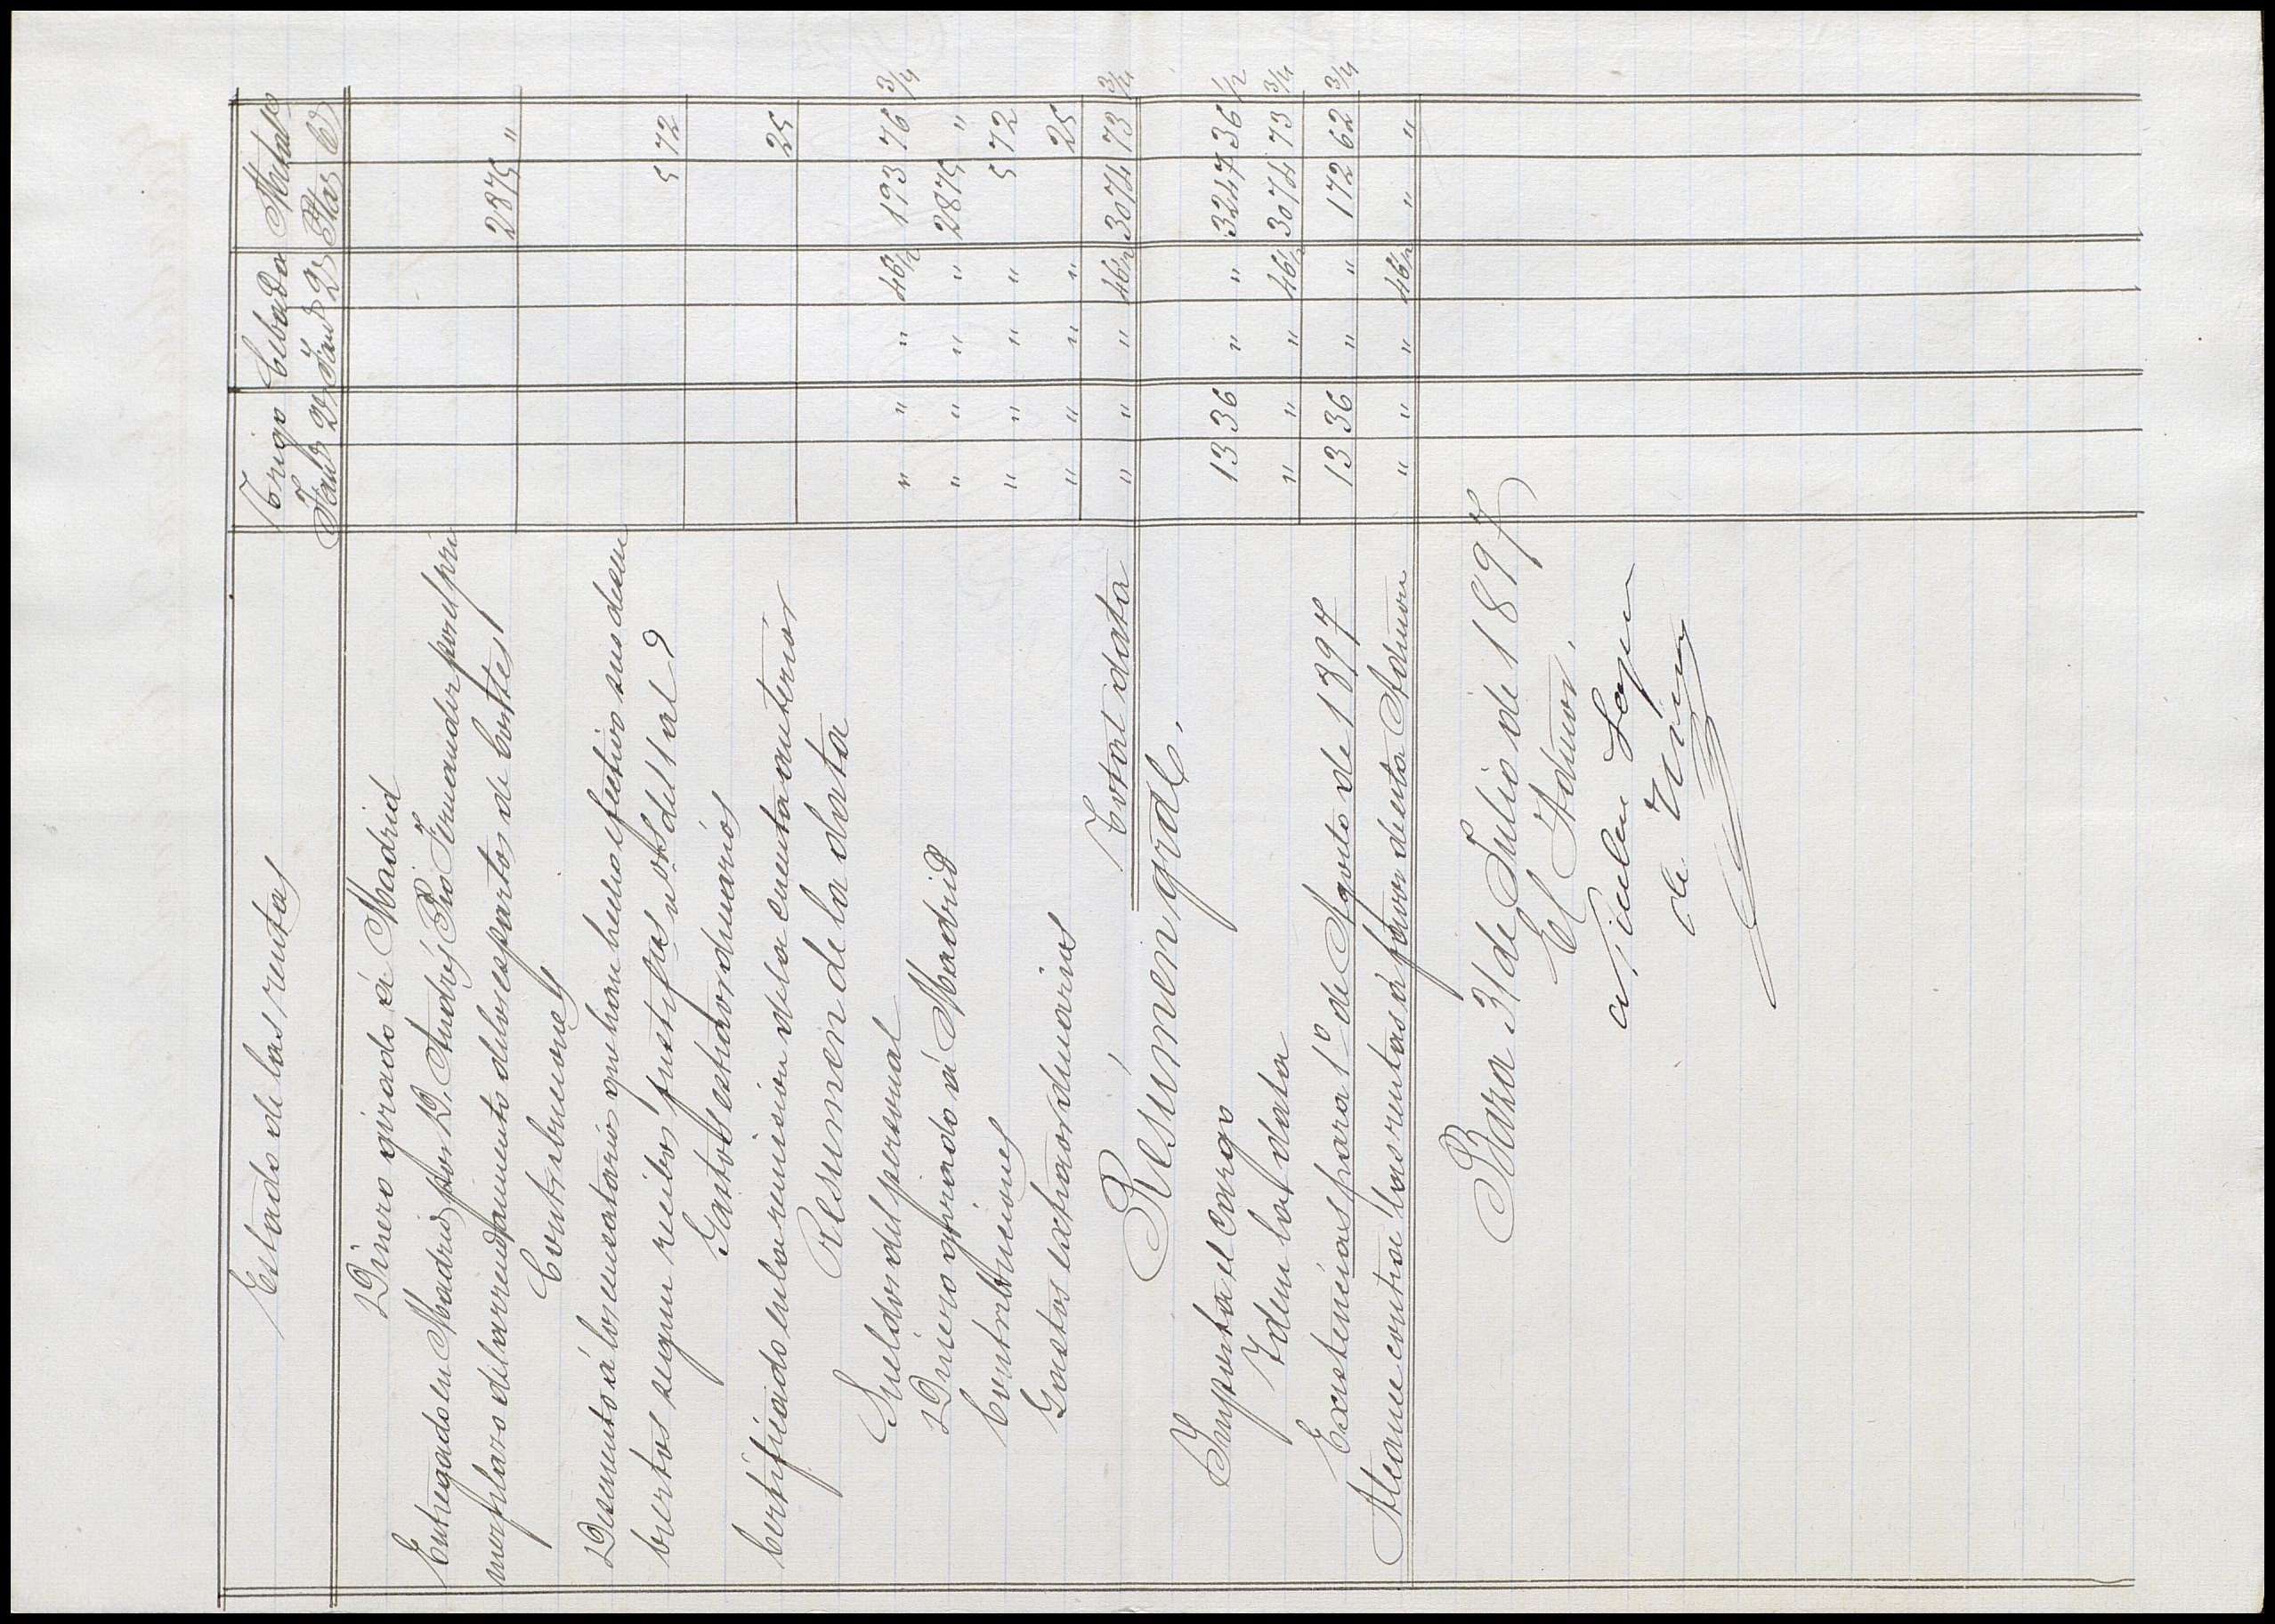 Estado de las rentas Trigo Cebada Metalco
Fans Qs Fans Qs Ptas Cs
Dinero girado á Madrid
Entregado en Madrid por D. Andrés Pio Fernandez por el pri
mer plazo del arrendamiento de los espartos de Cortes 2875 "
Contribuciones
Descuento á los censatarios que han hecho efectivo sus descu
biertos segun recibos justifos nos del 1 al 9 5 72
Gastos extraordinarios
Certificado en la remision de la cuenta anterior 25
Resumen de la data
Sueldos del personal " " " 46 1/2 193 76 3/4
Dinero girado á Madrid " " " " 2875 "
Contribuciones " " " " 5 72
Gastos extraordinarios " " " " 25
Total data " " " 46 1/2 3074 73 3/4
Resúmen gral.
Importa el cargo 13 36 " " 3247 36 1/2
Idem la data " " " 46 1/2 3074 73 3/4
Existencias para 1º de Agosto de 1897 13 36 " " 172 62 3/4
Alcance contra las rentas á favor de esta Admon " " " 46 1/2 " "
Baza 31 de Julio de 1897
El Admor.